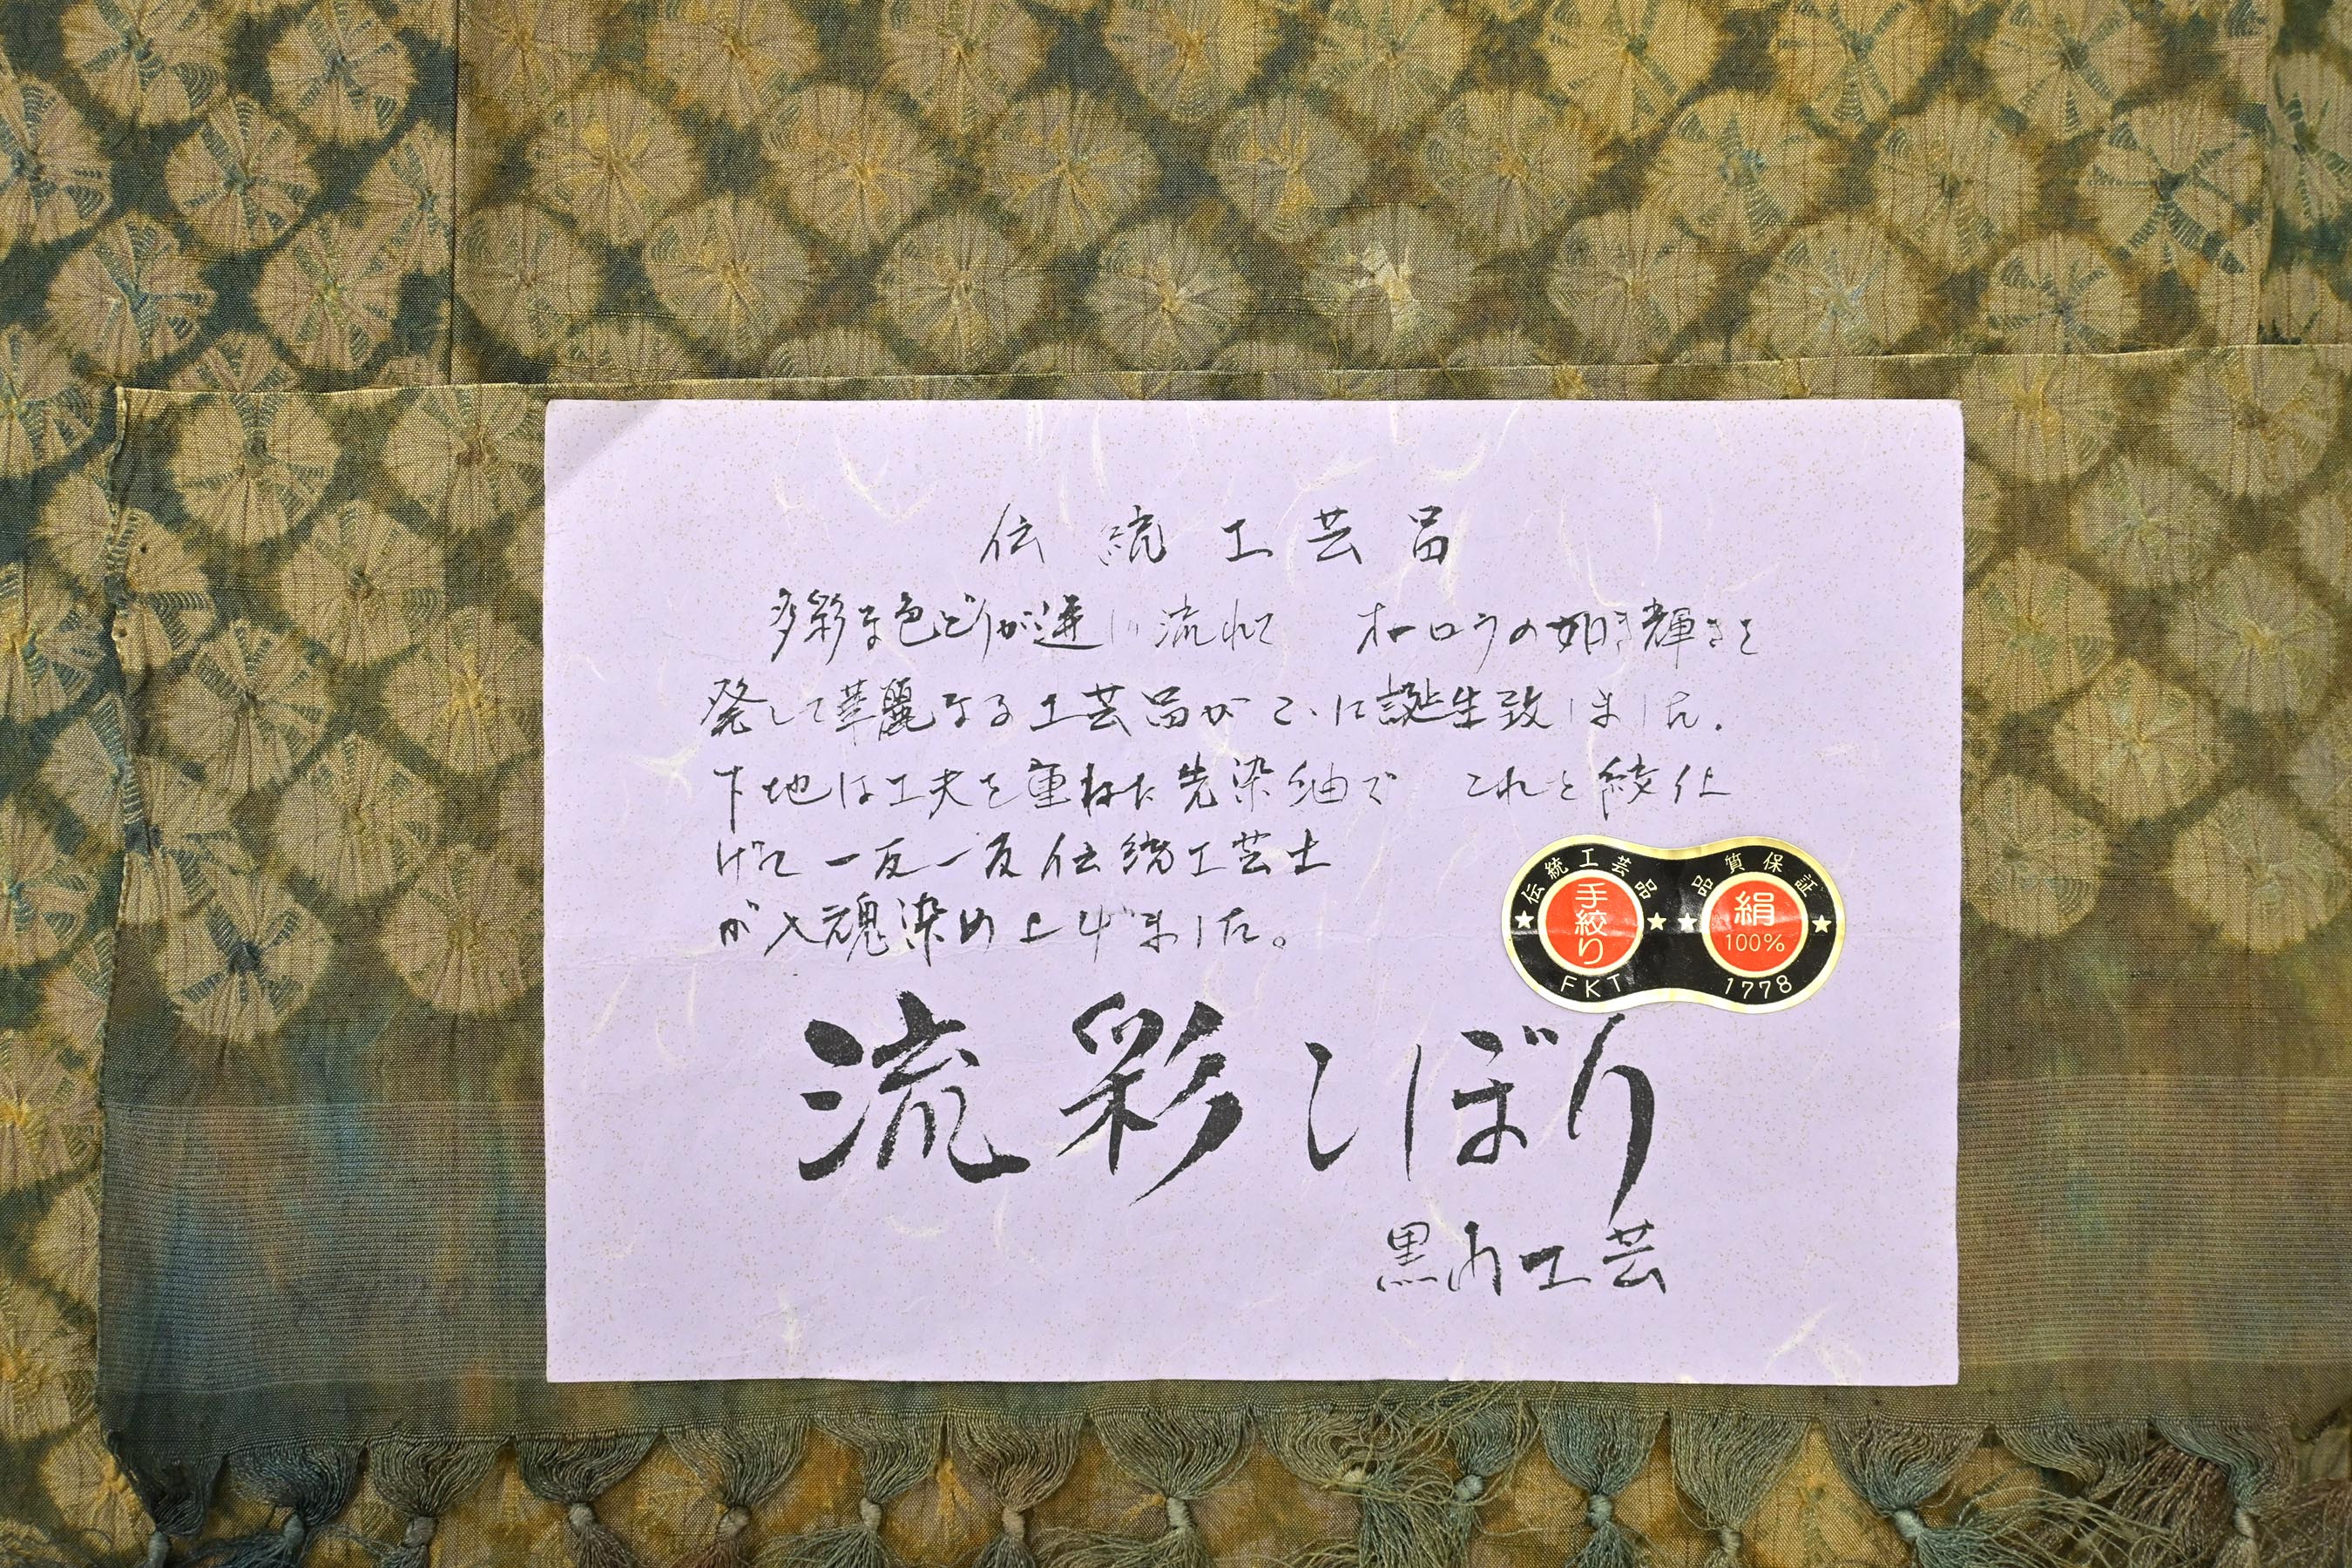 伝統工芸品
多彩な色どりが運に流れて オーロラの如き輝きを
発して華麗なる工芸品がここに誕生致しました.
下地は工夫を重ねた先染紬で これを絞仕上
げて一反一反伝統工芸士
が入魂染め上げました。
伝統工芸品
手絞り
FKT
品質保証
絹
100%
1778
流彩しぼり
工芸